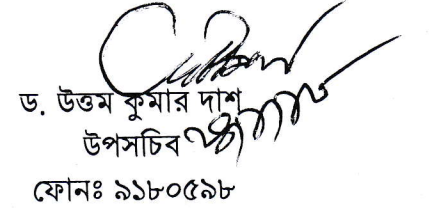 ড. উত্তম কুমার দাশ
উপসচিব
ফোনঃ ৯১৮০৫৯৮